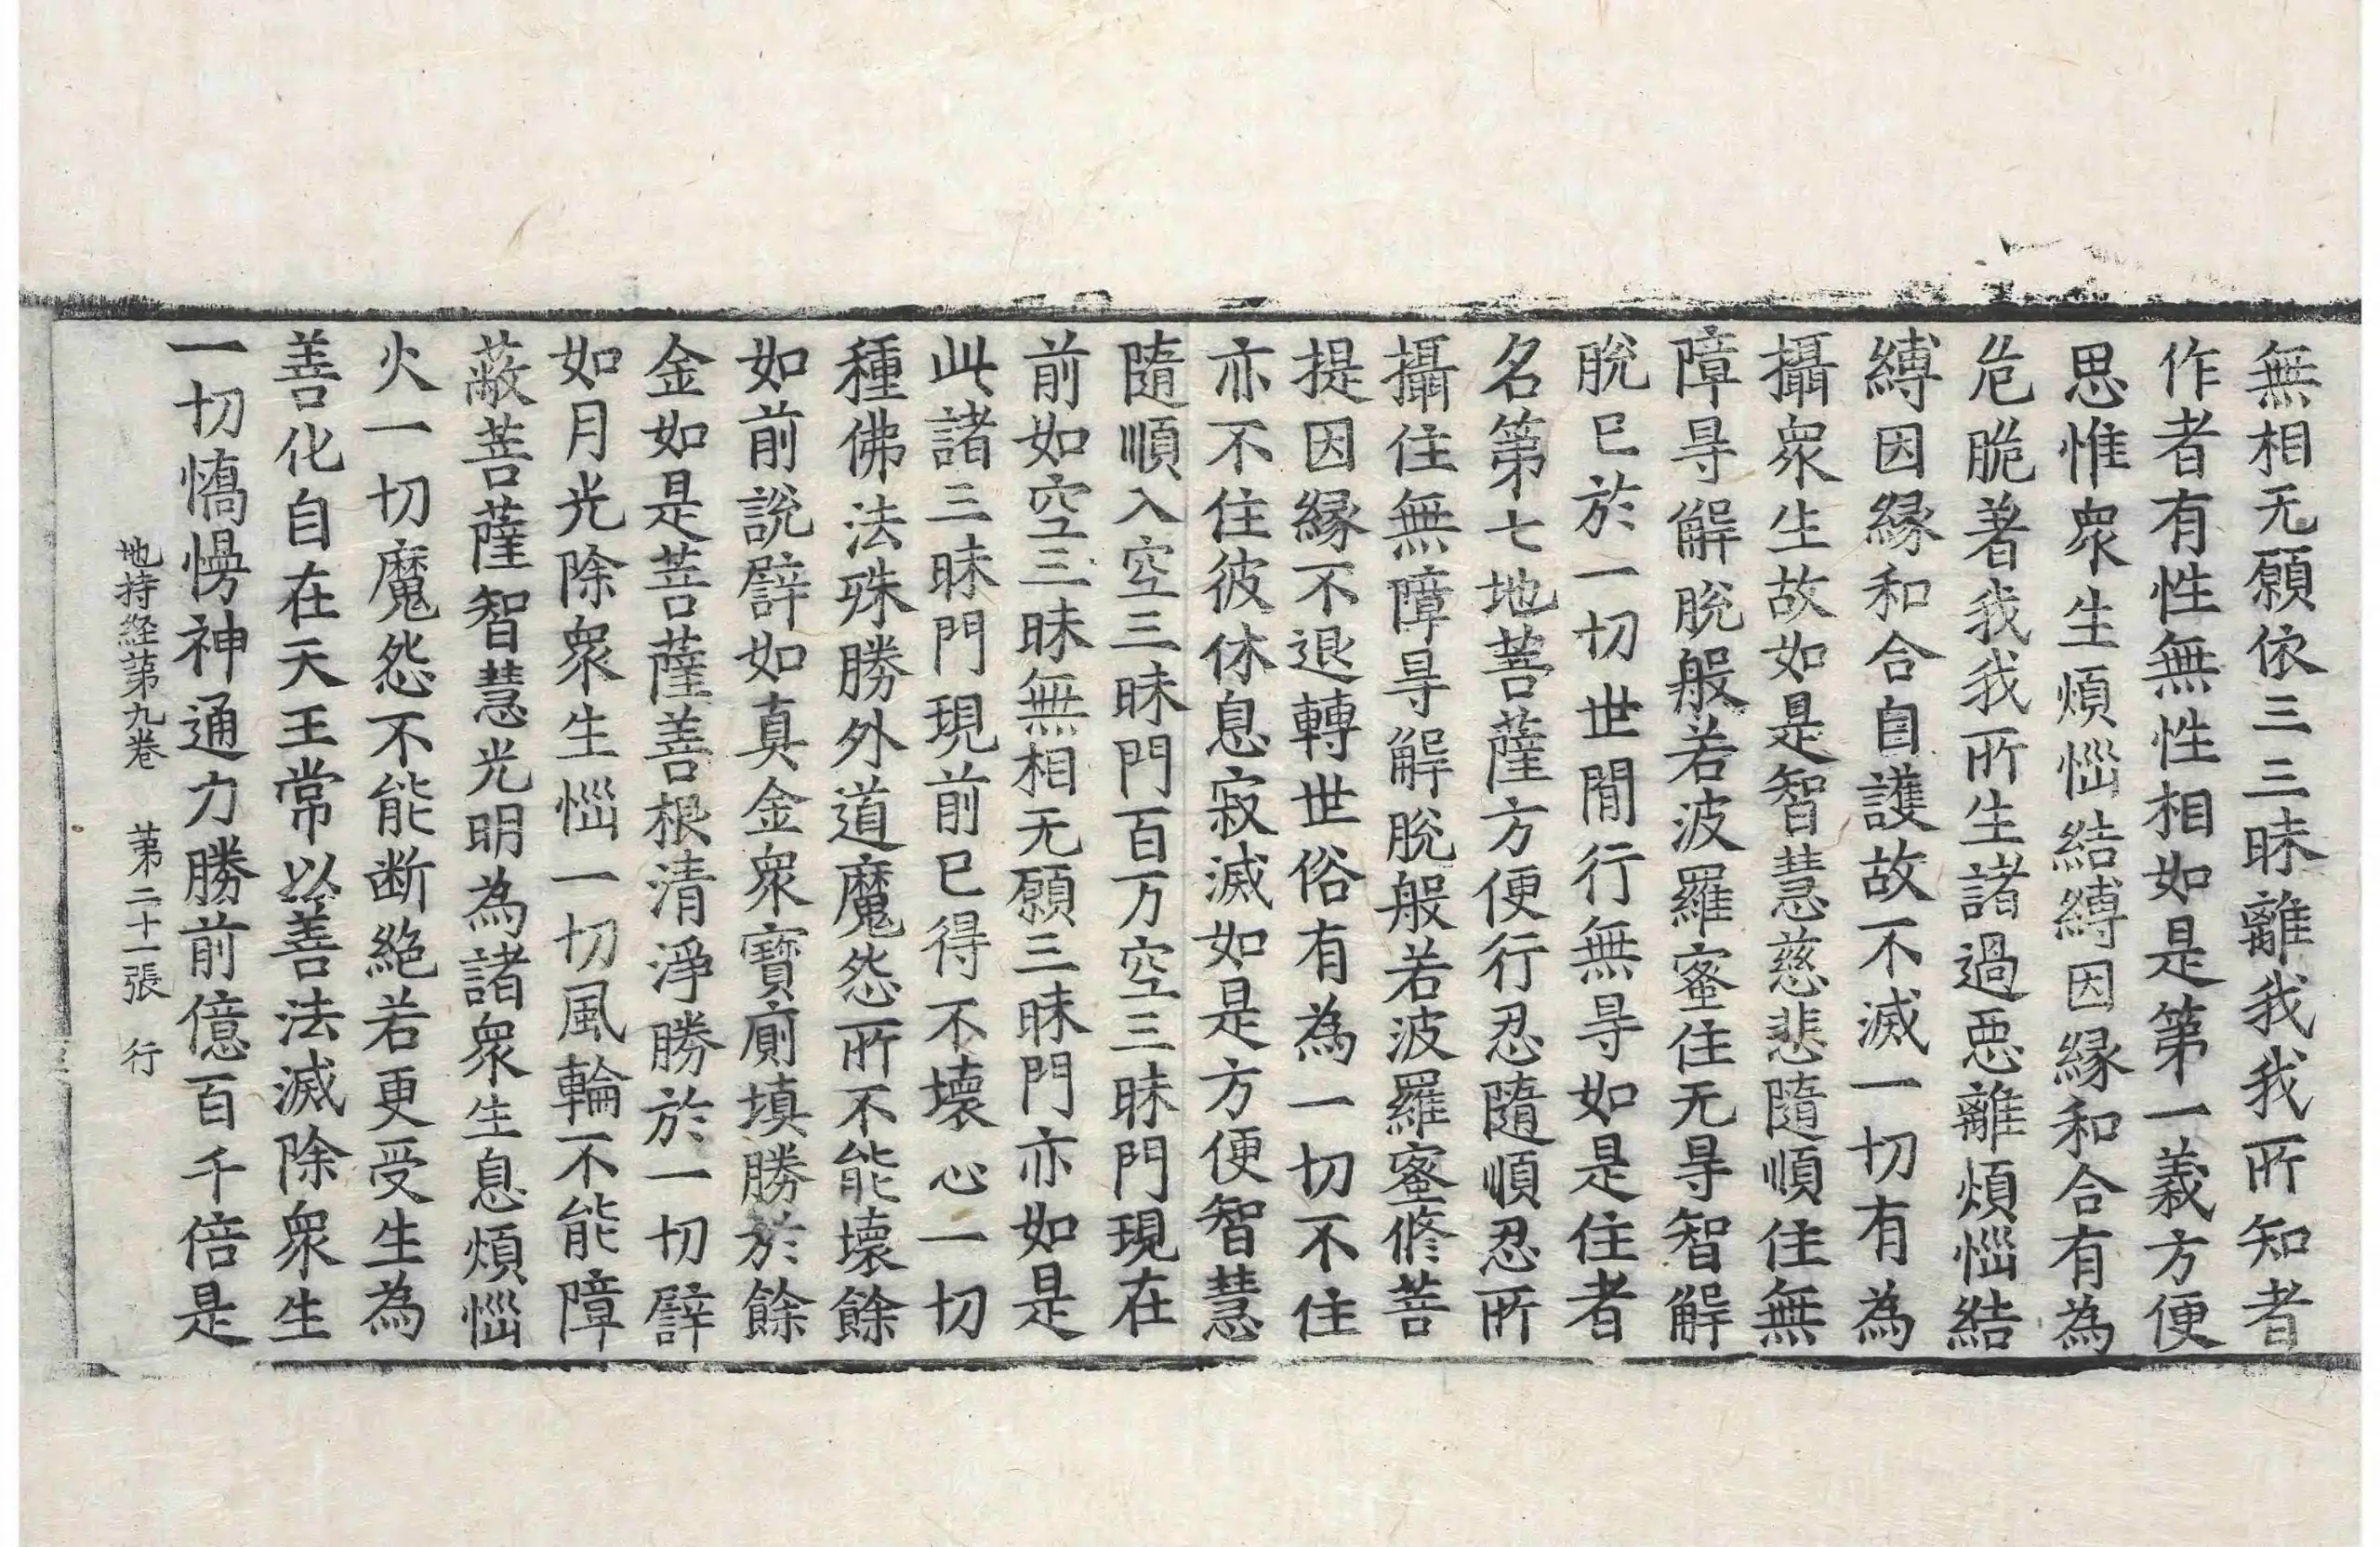 無相无願依三三昧離我我所知者
作者有性無性相如是第一義方便
思惟衆生煩惱結縛因縁和合有為
危脆著我我所生諸過惡離煩惱結
縛因縁和合自護故不滅一切有為
攝衆生故如是智慧慈悲隨順住無
障㝵解脫般若波羅蜜住无㝵智解
脫已於一切世間行無㝵如是住者
名第七地菩薩方便行忍隨順忍所
攝住無障㝵解脫般若波羅蜜修菩
提因縁不退轉世俗有為一切不住
亦不住彼休息寂滅如是方便智慧
隨順入空三昧門百万空三昧門現在
前如空三昧無相无願三昧門亦如是
此諸三昧門現前已得不壞心一切
種佛法殊勝外道魔怨所不能壞餘
如前說譬如真金衆寶廁填勝於餘
金如是菩薩善根清淨勝於一切譬
如月光除衆生惱一切風輪不能障
蔽菩薩智慧光明為諸衆生息煩惱
火一切魔怨不能断絶若更受生為
善化自在天王常以善法滅除衆生
一切憍慢神通力勝前億百千倍是
地持経苐九卷　苐二十一張　行